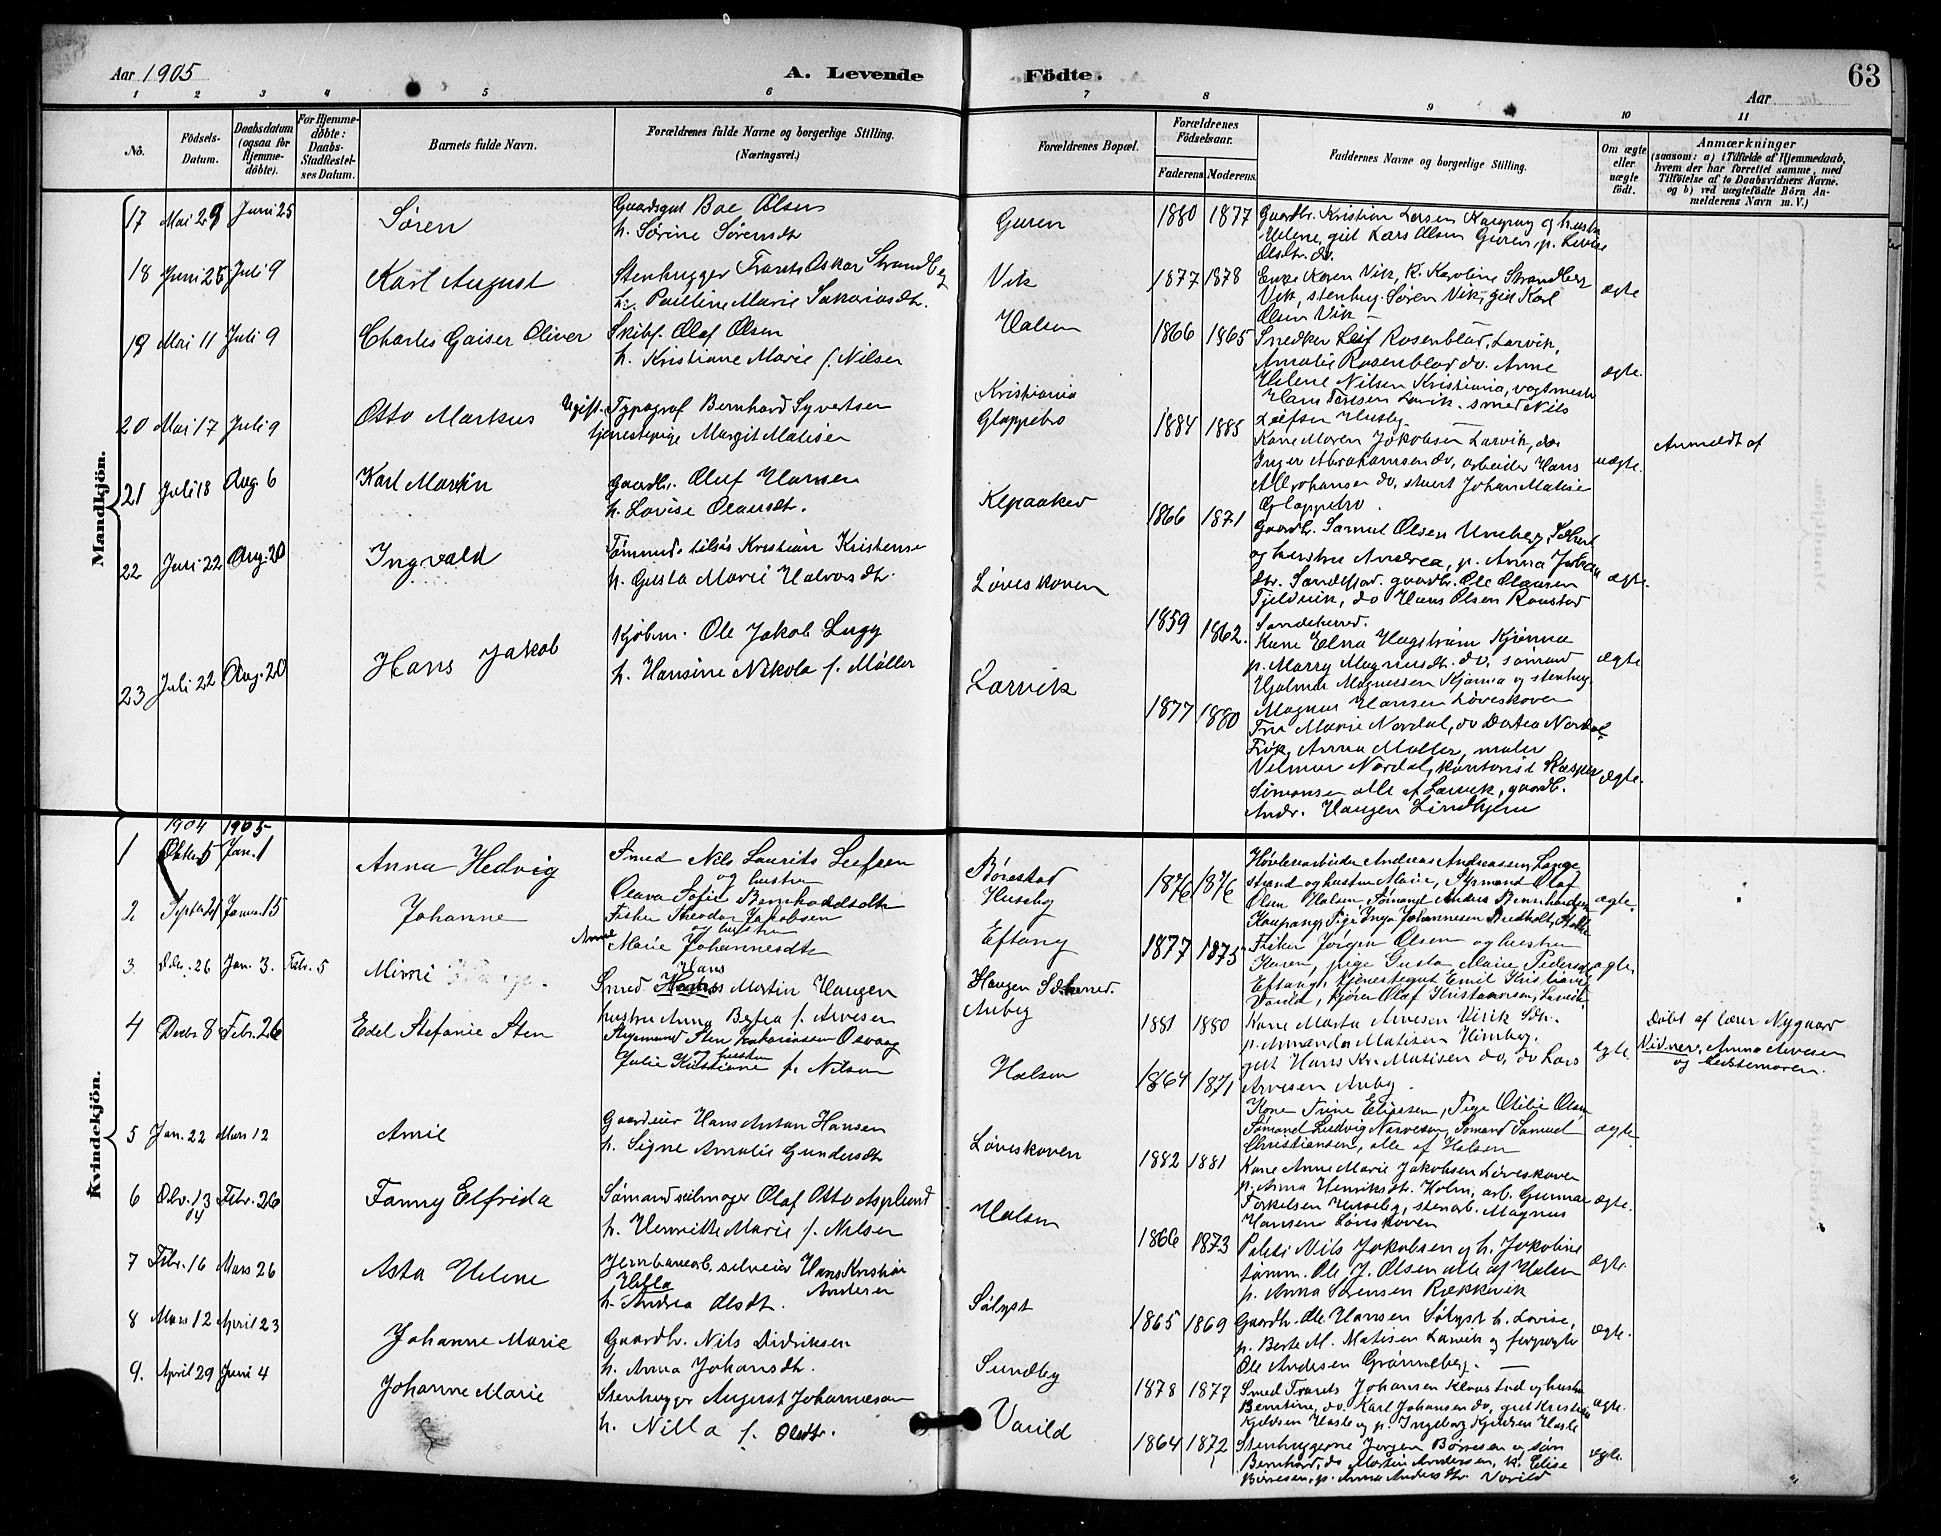 Aar 1905
A. Levende
Födte.
63
Aar
1 2 3 4 5 6 7 8 9 10 11
No.
Födsels-
Datum.
Daabsdatum
(ogsaa for
Hjemme-
döbte).
For Hjemme-
döbte:
Daabs-
Stadfæstel-
ses Datum.
Barnets fulde Navn.
Forældrenes fulde Navne og borgerlige Stilling.
(Næringsvei.)
Forældrenes Bopæl.
Forældrenes
Födselsaar.
Faderens.
Moderens.
Faddernes Navne og borgerlige Stilling.
Om ægte
eller
uægte
födt.
Anmærkninger
(saasom: a) i Tilfælde af Hjemmedaab,
hvem der har forrettet samme, med
Tilföielse af to Daabsvidners Navne.
og b) ved uægtefödte Börn An-
melderens Navn m. V.)
Mandkjön.
17 Mai 29 Juni 25 Søren
Gaardsgut Boe Olsen
h. Sørine Sørensdtr
Guren 1880 1877
Gaardbr. Kristian Larsen Kaupang og hustru
Helene, gut Lars Olsen Guren, p. Lovise
Olsdtr. do.
18 Juni 25 Juli 9 Karl August
Stenhugger Frants Oskar Strandberg
h. Pauline Marie Sakariasdtr.
Vik 1877 1878
Enke Karen Vik, K. Karoline Strandberg
Vik, stenhug. Søren Vik, gut Karl
Olsen Vik
ægte
19 Mai 11 Juli 9 Charles Gaiser Oliver
Skibsf. Olaf Olsen
h. Kristiane Marie f. Nilsen
Halsen 1866 1865
Snedker Leif Rosenblad, Larvik,
Amalie Rosenblad do. Anne
Helene Nilsen Kristiania, vagtmestr
Hans Larvik. smed Nils
Leifsen Huseby
ægte.
20 Mai 17 Juli 9 Otto Markus
Ugift. Typograf Bernhard Syvertsen
tjenestepige Margit Matisen
Kristiania
Gloppebro 1884 1885
Kone Maren Jakobsen Larvik, do
Inger Abrahamsen do, arbeider Hans
do, stuert Johan Matisen
Gloppebro.
uægte.
Anmeldt af
21 Juli 18 Aug 6 Karl Martin
Gaardbr. Oluf Hansen
h. Lovise Olausdtr.
Klepaaker 1866 1871
Gaardb. Samuel Olsen Unneberg
og hustru Andrea, p. Anna
dtr. Sandefjord. gaardbr. Ole Olausen
Fjeldvik, do Hans Olsen Ronstad
Sandeherred.
ægte.
22 Juni 22 Aug. 20 Ingvald
Tømmed Kristian Kristensen
h. Gusta Marie Halvorsdtr.
Løveskoven 1859 1862.
Kone Elna Hagstrøm Kjønna
p. Marry Magnusdtr. do. sømand
Hjalmar Magnussen Kjønna og stenhug.
Magnus Hansen Løveskoven
ægte
23 Juli 22 Aug. 20 Hans Jakob
Kjøbm. Ole Jakob
h. Hansine Nikola f. Møller
Larvik 1877 1880
Fru Marie Nordal, do Dortea Nordal
Frøk. Anna Møller, maler
Vilmar Nordal, kontorist Kasper
Simonsen alle af Larvik, gaardb.
Andr. Haugen Lindhjem
ægte.
Kvindekjön.
1904 1905
1 Oktbr 5 Jan. 1 Anna Hedvig
Smed Nils Laurits Leifsen
og hustru
Olava Sofie Bernhardsdtr
Bøvestad
Huseby 1876 1876
Høvleriarbeider Andreas Andreassen Lange
strand og hustru Marie, Styrmand Olaf
Olsen Halsen Sømand Anders Bernhardsen
Kaupang, Pige Inga Johannesen
ægte.
2 Septbr 24 Januar 15 Johanne
Fisker Theodor Jakobsen
og hustru
Anne Marie Johannesdtr
Eftang 1877 1875
Fisker Jørgen Olsen og hustru
Karen, pige Gusta Marie Pedersen
Eftang, tjenestegut Emil Kristiansen
Varild, Olaf Kristiansen, Larvik
ægte.
3. Dcbr. 26 Jan. 3. Febr. 5 Mimi
Hans
Smed Martin Haugen
hustru Anna Bertea f. Arvesen
Haugen
Auby 1881 1880
Kone Marta Arvesen Sdhr.
p. Amanda Matisen Himberg.
gut Hans Kr. Matisen do, do Lars
Arvesen Auby.
ægte
Døbt af lærer Nygaard
Vidner, Anna Arvesen
og bedstemoren.
4 Decbr 8 Febr. 26 Edel Stefanie Sten
Styrmand Sten Sakariassen Osvaag
og hustru
Julie Kristiane f. Nilsen
Halsen 1864 1871
Kone Trine Eliassen, Pige Otilie Olsen
Sømand Ludvig Narvesen, Sømand Samuel
Christiansen, alle af Halsen
ægte
5 Jan. 22 Mars 12 Amie
Gaardeier Hans Anton Hansen
h. Signe Amalie Gundersdtr
Løveskoven 1882 1881
Kone Anne Marie Jakobsen Løveskoven
p. Anna Henriksdtr. Holm, arb. Gunnar
Torkelsen Huseby, stenarb. Magnus
Hansen Løveskoven
ægte.
6 Okbr. 13 04 Febr. 26 Fanny Elfrida
Sømand seilmager Olaf Otto Asplund
h. Henriette Marie f. Nelsen
Halsen 1866 1873
Politi Nils Jakobsen og h. Jokobine
tømm. Ole J. Olsen alle af Halsen
p. Anna Sørensen Rækkevik
ægte.
7 Febr. 16 Mars 26 Asta Helene
Jernbanearb. selveier Hans Kristian
Andersen
Hella
h. Andrea Olsdtr.
Sølyst 1865 1869
Gaardb. Ole Hansen Sølyst h. Lovise,
p. Berte M. Matisen Larvik og
Ole Andersen Grønneberg.
ægte.
8 Mars 12 April 23 Johanne Marie
Gaardbr. Nils Didriksen
h. Anna Johansdtr.
Sundby 1878 1877
Smed Frants Johansen Klovstad og hustru
Berntine, do. Karl Johansen do, gut Kristian
Kjeldsen Hasle og p. Ingeborg Kjeldsen Hasle
ægte.
9. April 29 Juni 4 Johanne Marie
Stenhugger August Johannesen
h. Nilla f. Olsdtr.
Varild 1864 1872
Stenhuggerne Jørgen Børresen og søn
Bernhard, do Martin Andersen, k. Elise
Børresen, p. Anna Andersdtr. Varild
ægte.